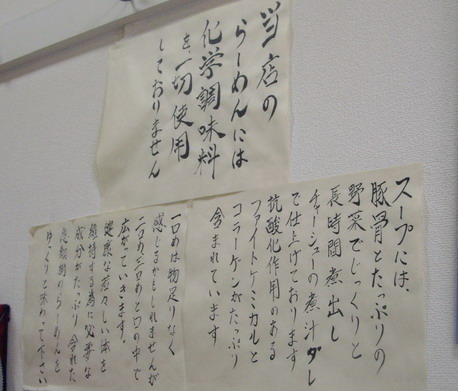 当店の
らーめんには
化学調味料
を、一切使用
しておりません
スープには、
豚骨とたっぷりの
野菜でじっくりと
長時間煮出し
チャーシューの煮汁ダレ
で仕上げております
抗酸化作用のある
ファイトケミカルと
コラーゲンがたっぷり
含まれています
一口めは物足りなく
感じるかもしれませんが
二口め三口めと口の中で
広がっていきます。
健康な若々しい体を
維持する為に必要な
成分がたっぷり含れた
のらーめんを
ゆっくりと味わって下さい